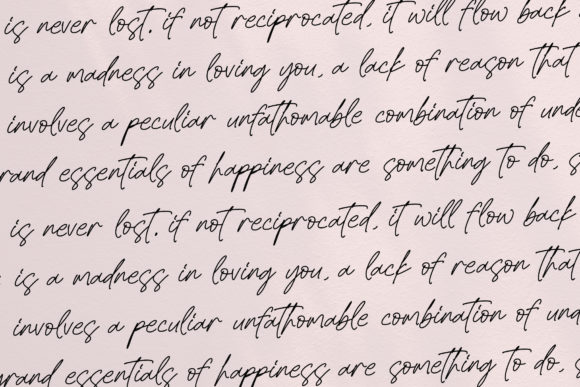 is never lost. if not reciprocated, it will flow back
is a madness in loving you, a lack of reason that
involves a peculiar unfathomable combination of und
rand essentials of happiness are something to do, s
is never lost. if not reciprocated, it will flow back
is a madness in loving you, a lack of reason that
involves a peculiar unfathomable combination of und
grand essentials of happiness are something to do, s